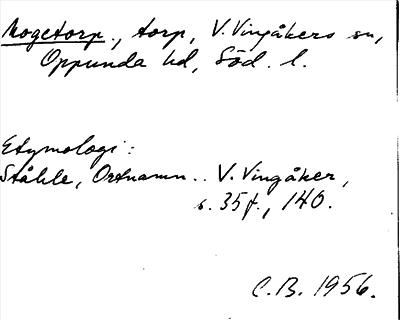 Mogetorp., torp, V. Vingåkers sn,
Oppunda hd, Söd. l.
Etymologi:
Ståhle, Ortnamn.. V. Vingåker,
s. 35f., 140.
C.B. 1956.